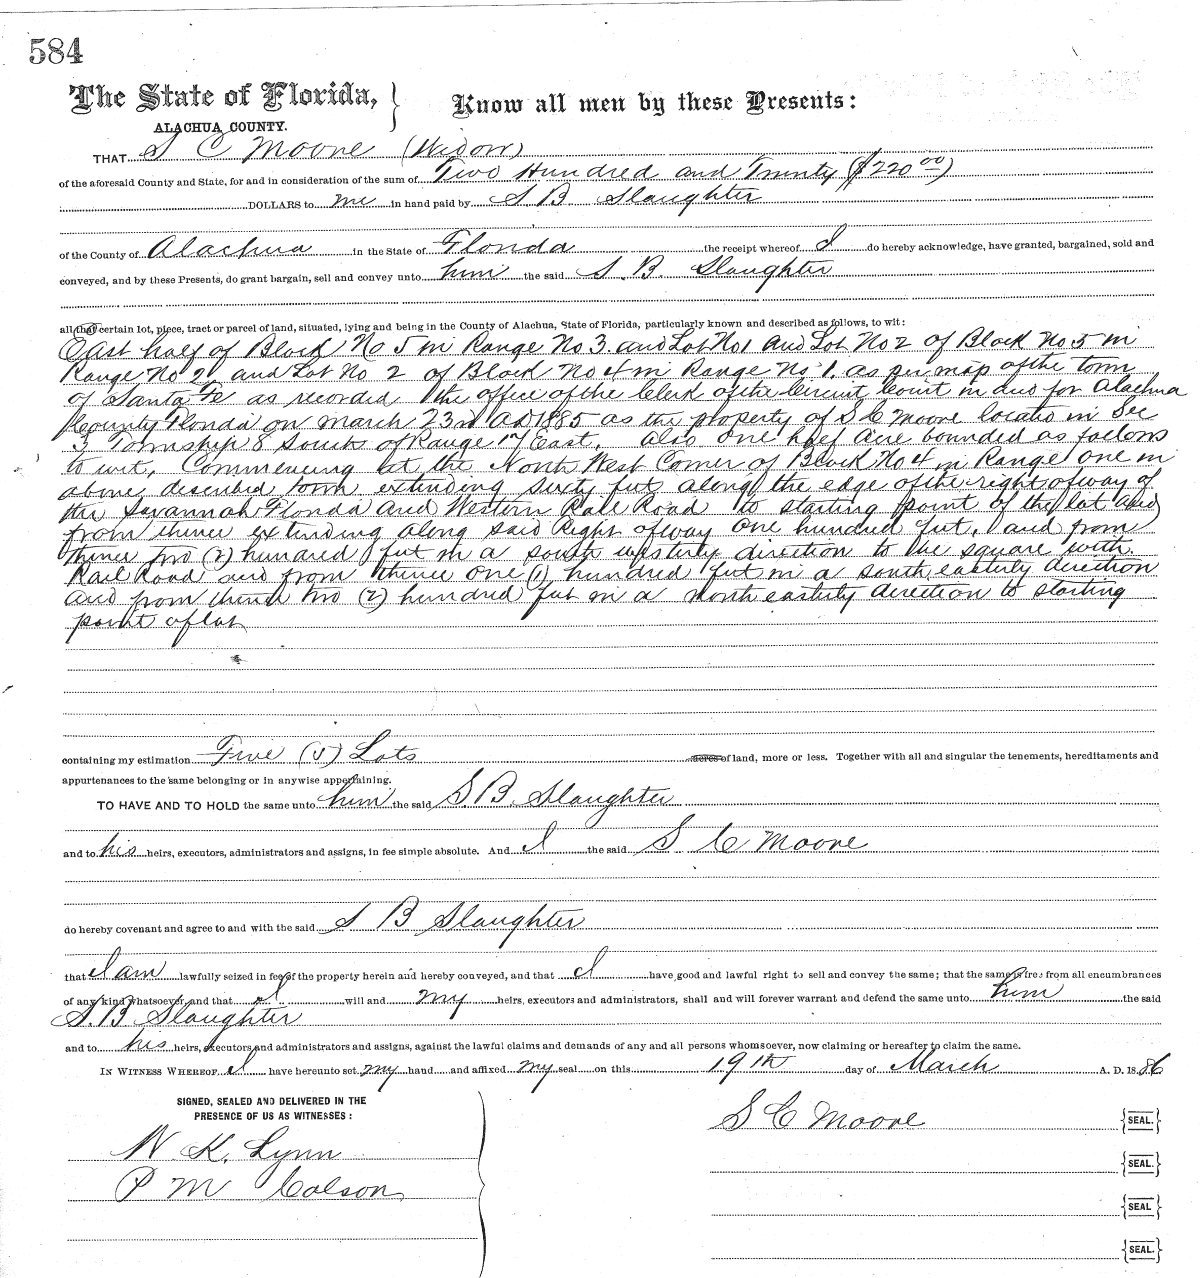 584
The State of Florida, } Know all men by these Presents:
ALACHUA COUNTY.
THAT S C Moore (Widow)
of the aforesaid County and State, for and in consideration of the sum of Two Hundred and Twenty ($220 00)
DOLLARS to me in hand paid by S B Slaughter
of the County of Alachua in the State of Florida the receipt whereof I do hereby acknowledge, have granted, bargained, sold and
conveyed, and by these Presents, do grant bargain, sell and convey unto him the said S. B. Slaughter
all that certain lot, piece, tract or parcel of land, situated, lying and being in the County of Alachua, State of Florida, particularly known and described as follows, to wit:
East half of Block No 5 in Range No 3. and Lot No 1 and Lot No 2 of Block No 5 in
Range No 2 and Lot No 2 of Block No 4 in Range No 1. as per map of the town
of Santa Fe as recorded the office of the Clerk of the Circuit Court in and for Alachua
County Florida on March 23rd AD 1885 as the property of S C Moore located in Sec
3 Township 8 South of Range 17 East. Also one half acre bounded as follows
to wit, Commencing at the North West Corner of Block No 4 in Range one in
above described town extending sixty feet along the edge of the right of way of
the Savannah Florida and Western Rail Road to starting point of the lot and
from thence extending along said Right of way one hundred feet, and from
thence two (2) hundred feet in a south westerly direction to the square with
Rail Road and from thence one (1) hundred feet in a south easterly direction
and from thence two (2) hundred feet in a north easterly direction to starting
point of lot
containing my estimation Five (5) Lots acres of land, more or less. Together with all and singular the tenements, hereditaments and
appurtenances to the same belonging or in anywise appertaining.
TO HAVE AND TO HOLD the same unto him the said S. B. Slaughter
and to his heirs, executors, administrators and assigns, in fee simple absolute. And I the said S C Moore
do hereby covenant and agree to and with the said S B Slaughter
that I am lawfully seized in fee of the property herein and hereby conveyed, and that I have good and lawful right to sell and convey the same; that the same is free from all encumbrances
of any kind whatsoever, and that I will and my heirs, executors and administrators, shall and will forever warrant and defend the same unto him the said
S. B Slaughter
and to his heirs, executors and administrators and assigns, against the lawful claims and demands of any and all persons whomsoever, now claiming or hereafter to claim the same.
IN WITNESS WHEREOF I have hereunto set my hand and affixed my seal on this 19th day of March A. D. 1886
SIGNED, SEALED AND DELIVERED IN THE
PRESENCE OF US AS WITNESSES:
S C Moore {SEAL.}
W. K. Lynn
{SEAL.}
P M Colson
{SEAL}
{SEAL.}